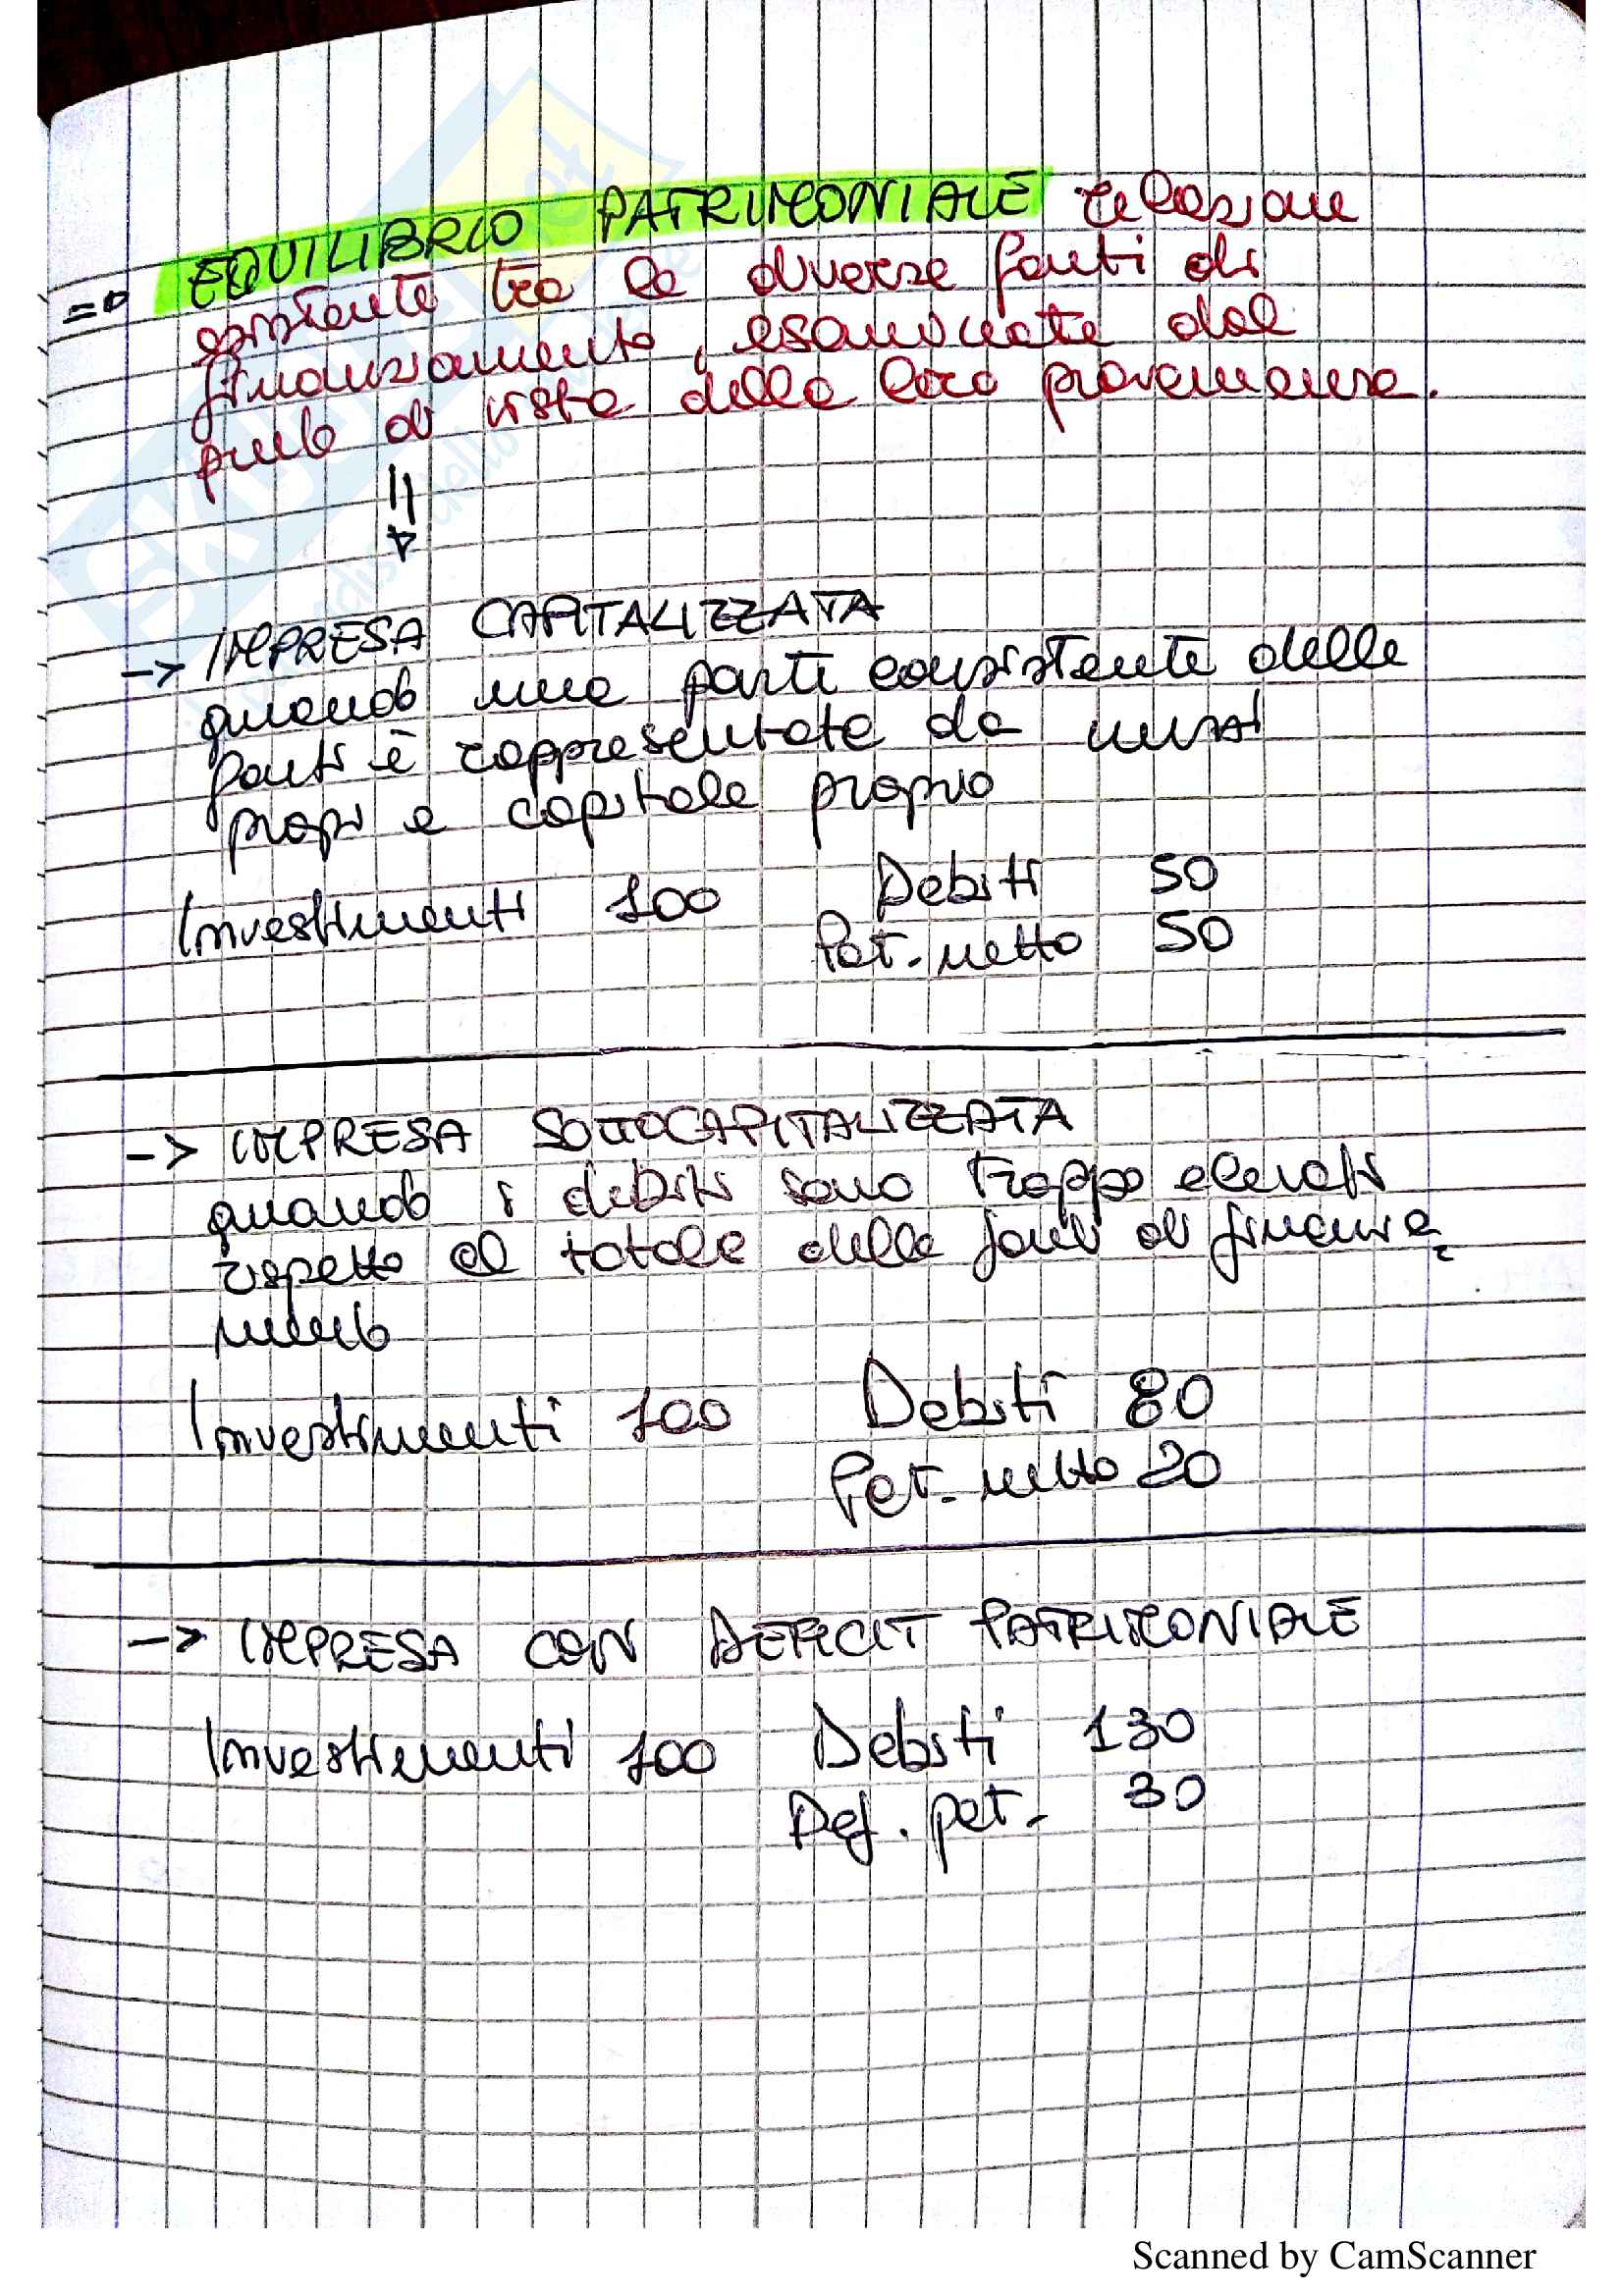 => EQUILIBRIO PATRIMONIALE relazione
esistente tra le diverse fonti di
finanziamento, esaminate dal
punto di vista della loro provenienza.
-> IMPRESA CAPITALIZZATA
quando una parte consistente delle
fonti è rappresentata da mezzi
propri e capitale proprio
Investimenti 100 Debiti 50
Pat. netto 50
-> IMPRESA SOTTOCAPITALIZZATA
quando i debiti sono troppo elevati
rispetto al totale delle fonti di finanzia
mento
Investimenti 100 Debiti 80
Pat. netto 20
-> IMPRESA CON DEFICIT PATRIMONIALE
Investimenti 100 Debiti 130
Def. pat. 30
Scanned by CamScanner